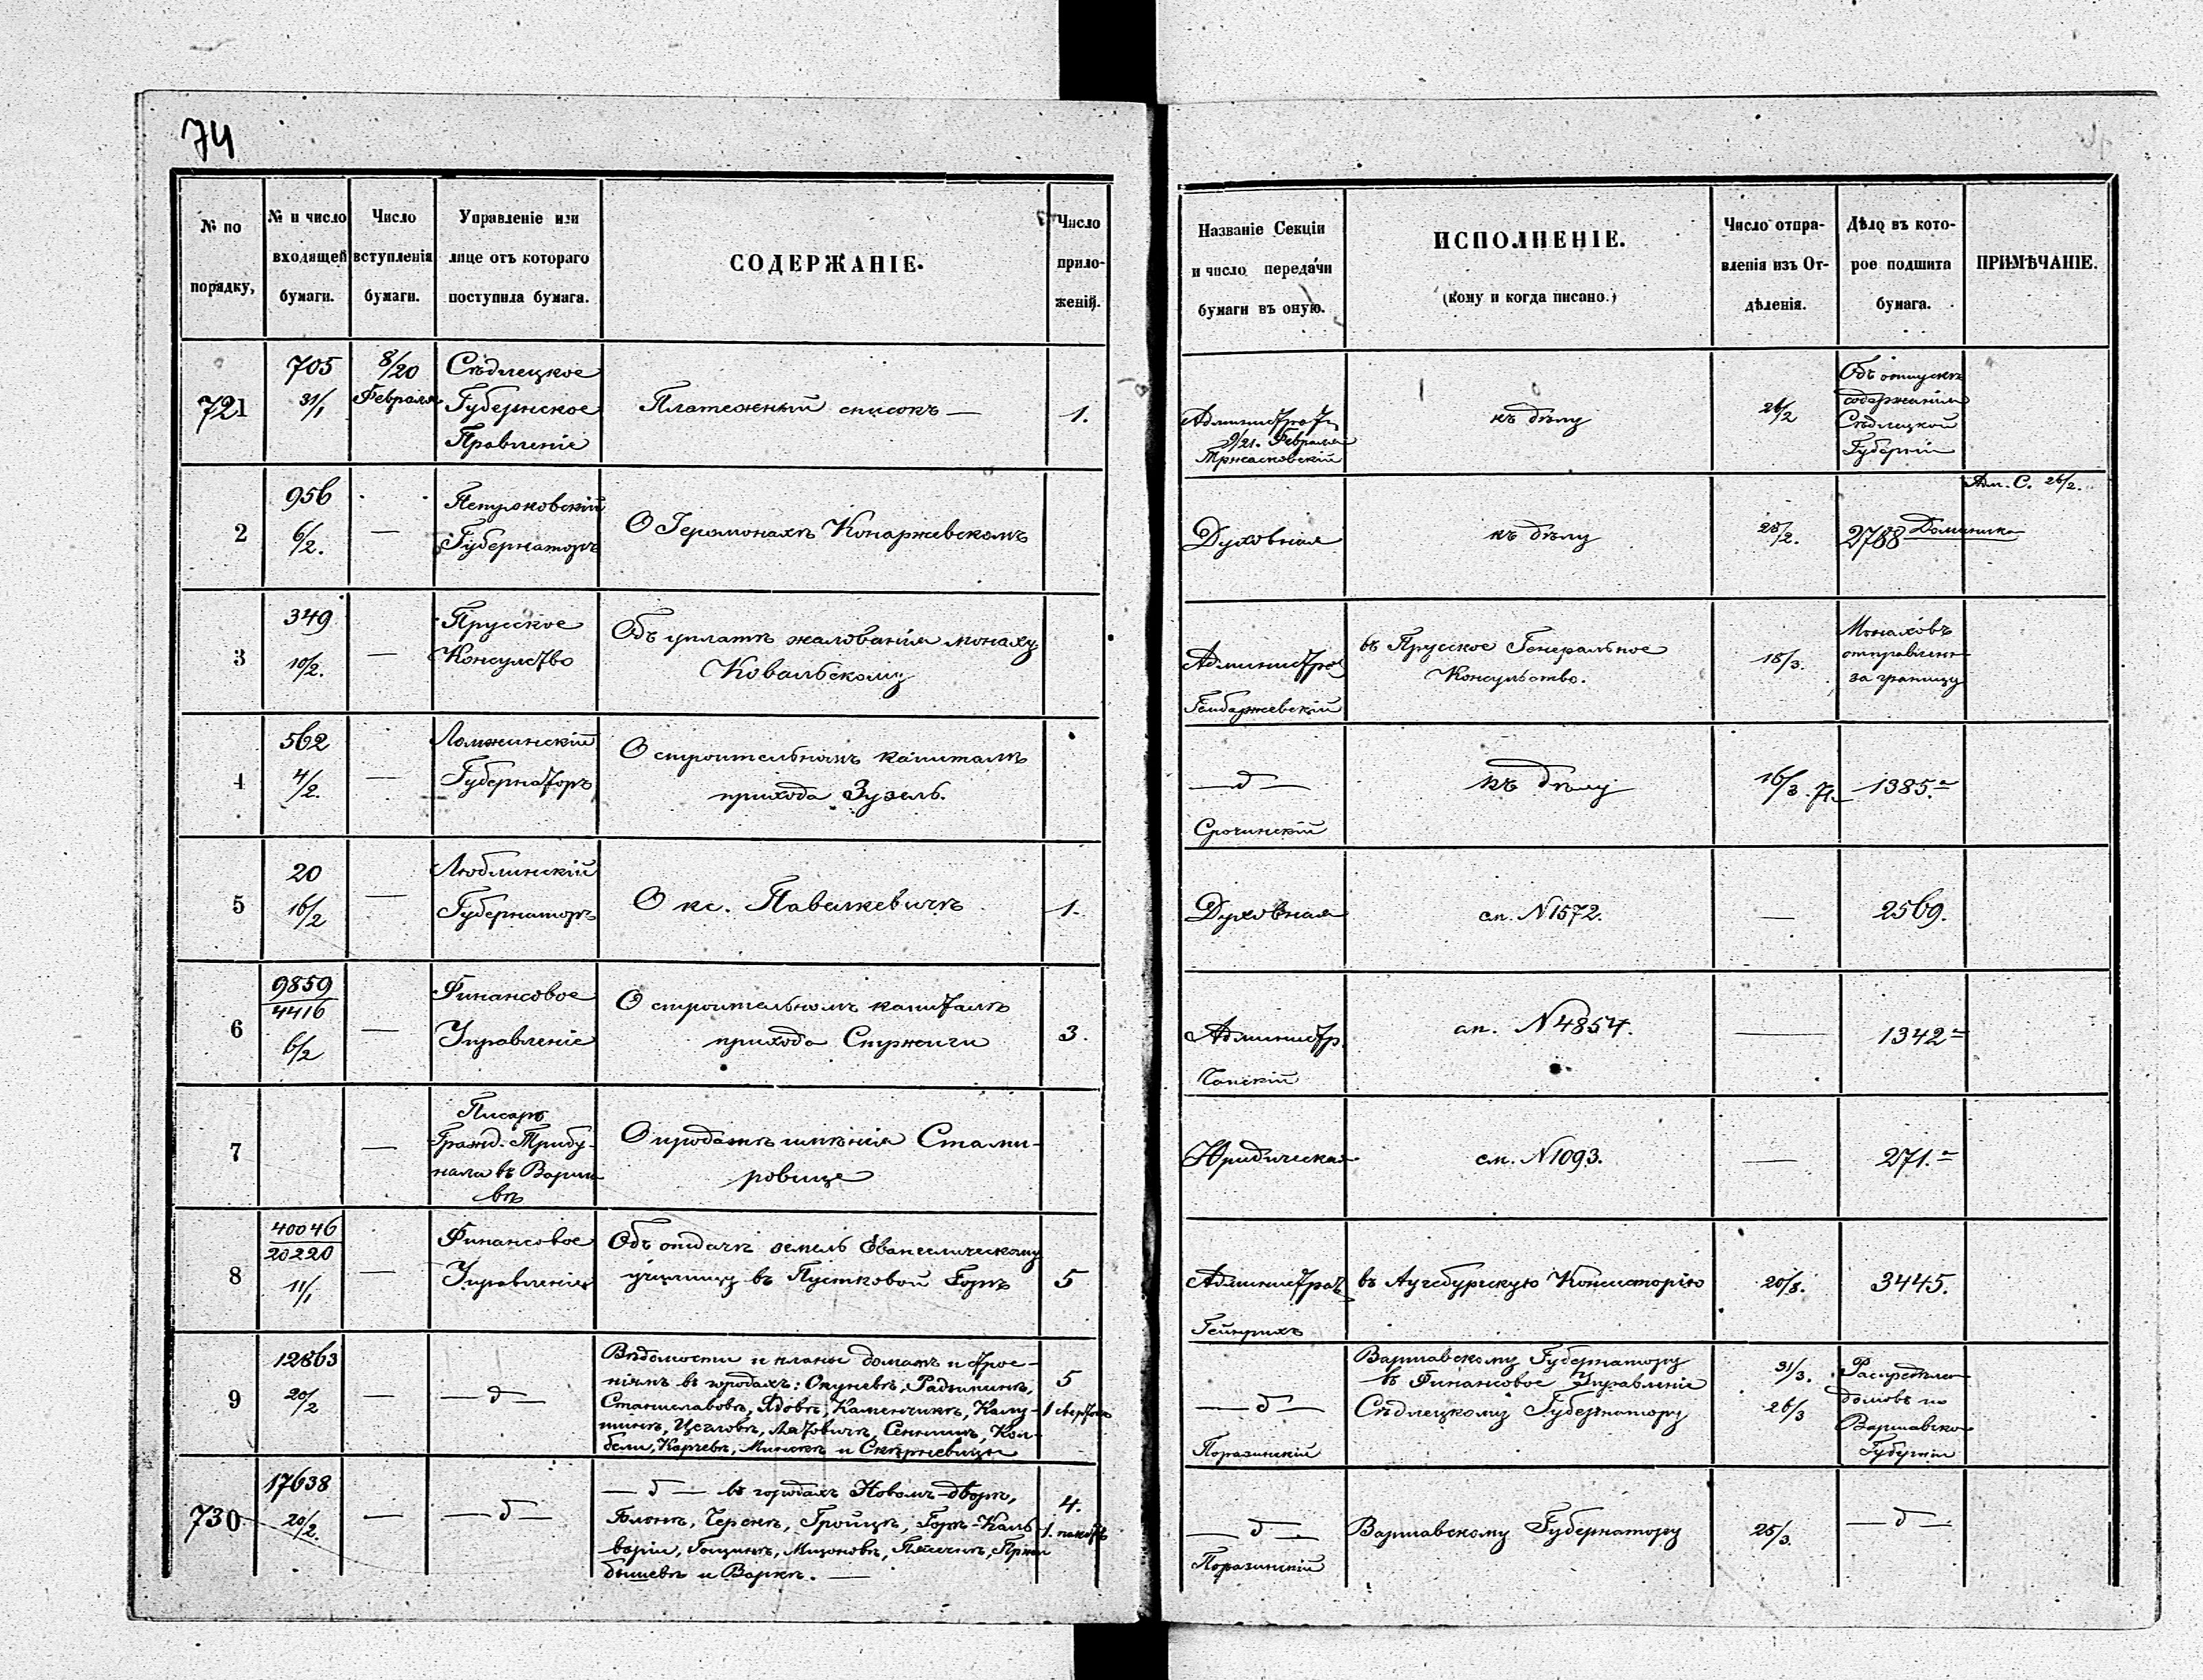 74
№ по порядку,
№ и число входящей бумаги.
Число вступленія бумаги.
Управленіе или лице отъ котораго поступила бумага.
СОДЕРЖАНІЕ.
Число приложеній.
Названіе Секціи и число передачи бумаги въ оную.
ИСПОЛНЕНІЕ.
(кому и когда писано.)
Число отправленія изъ Отдѣленія.
Дѣло въ которое подшита бумага.
ПРИМѢЧАНІЕ.
721
705
31/1
8/20
Февраля
Сѣдлецкое
Губернское
Правленіе
Платежный списокъ —
1.
9/21. Февраля
къ дѣлу
26/2
Объ отпускѣ
содержанія
Сѣдлецкой
Губерніи
2
956
6/2.
—
Петроковскій
Губернаторъ
О Іеромонахѣ Конаржевскомъ
Духовная
къ дѣлу
28/2.
2788
Адм. С. 26/2.
3
349
10/2.
—
Прусское
Консулство
Объ уплатѣ жалованія монаху
Ковальскому
Гембаржевскій
въ Прусское Генеральное
Консульство.
18/3.
Монаховъ
отправлен
за границу
4
562
4/2.
—
Ломжинскій
Губернаторъ
О строительномъ капиталѣ
прихода Зузель.
— д —
Срочинскій
къ дѣлу
16/3. 71
1385.
5
20
16/2
—
Люблинскій
Губернаторъ
О кс. Павелкевичѣ
1.
Духовная
см. N 1572.
—
2569.
6
9859
4416
6/2
—
Финансовое
Управленіе
О строительномъ капиталѣ
прихода Стржиги
3.
Администр.
см. N 4854.
—
1342
7
—
Писарь
Гражд. Трибу-
нала въ Варша-
вѣ
О продажѣ имѣнія Стами-
ровице
Юридическая
см. N 1093.
—
271.
8
40046
20220
11/1
—
Финансовое
Управленіе
Объ отдачѣ земель Евангелическому
училищу въ Пустковой Горѣ
5
Администрат.
Гейнрихъ
въ Аугсбургскую Консисторію
20/8.
3445.
9
12863
20/2
—
— д —
Вѣдомости и планы домамъ и строе-
ніямъ въ городахъ: Окуневѣ, Радзыминѣ,
Станиславовѣ, Ядовѣ, Каменчикѣ, Калу-
шинѣ, Цегловѣ, Латовичѣ, Сенницѣ, Кол-
бели, Карчевѣ, Минскѣ и Скерневицы
5
— д —
Поразинскій
Варшавскому Губернатору
въ Финансовое Управленіе
Сѣдлецкому Губернатору
31/3.
26/3
домовъ по
Варшавско
Губерніи
730
17638
20/2.
—
— д —
— д — въ городахъ Новомъ-дворѣ,
Блонѣ, Черскѣ, Гройцѣ, Горѣ-Каль-
варіи, Гощинѣ, Мщоновѣ, Пясечнѣ, Пржи
бышевѣ и Варкѣ. —
4.
— д —
Поразинскій
Варшавскому Губернатору
25/3.
— д —